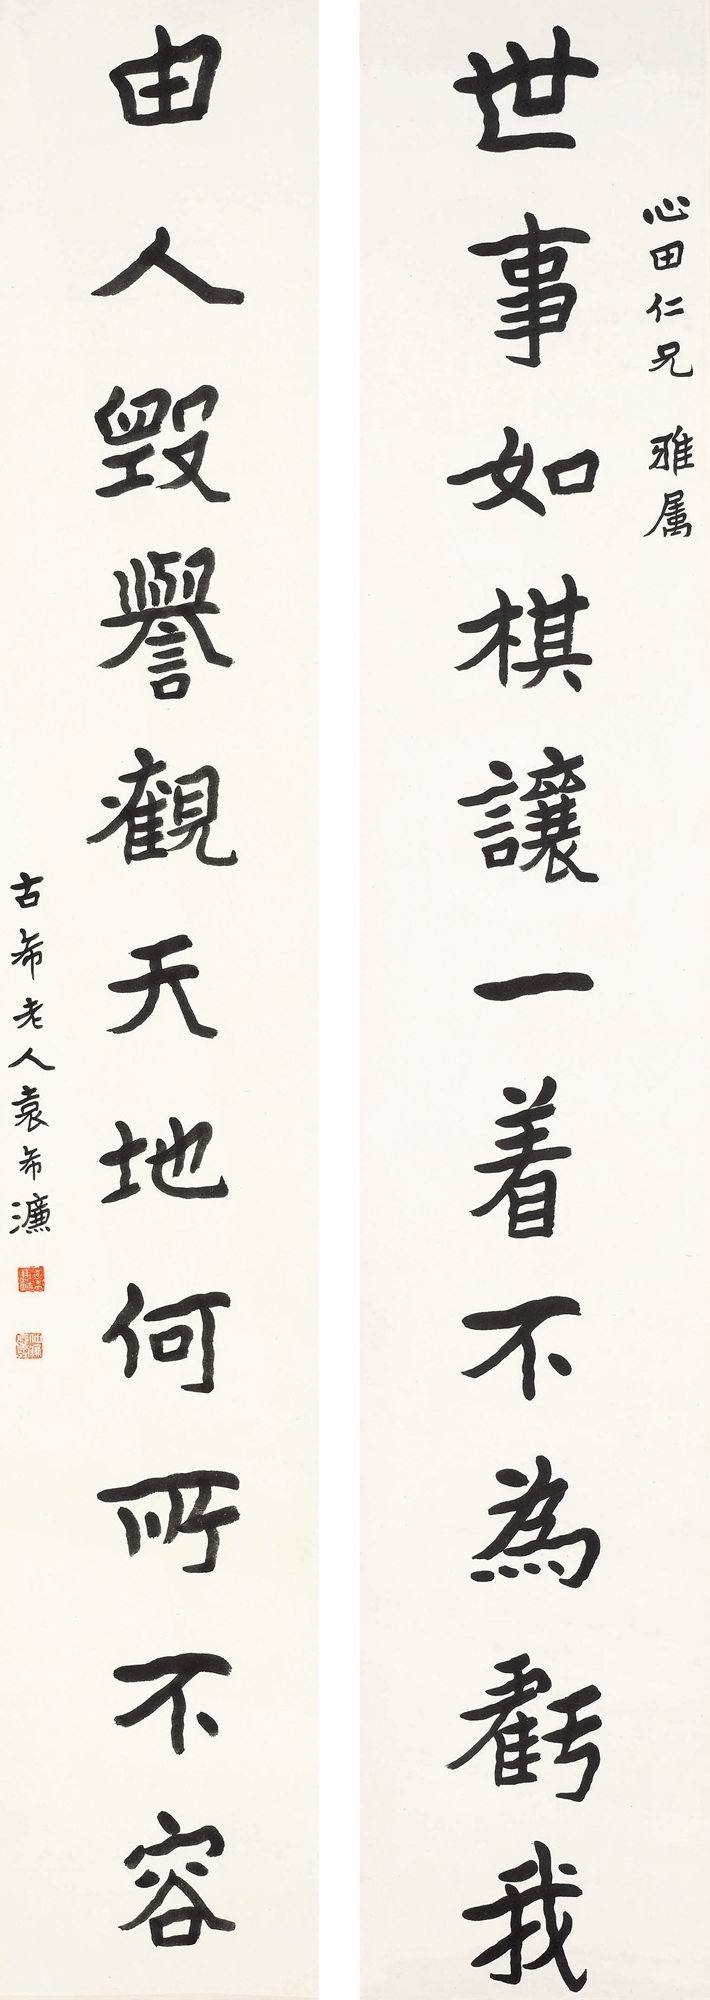 心田仁兄 雅属
世事如棋讓一着不為虧我
由人毀譽觀天地何所不容
古希老人袁希濂